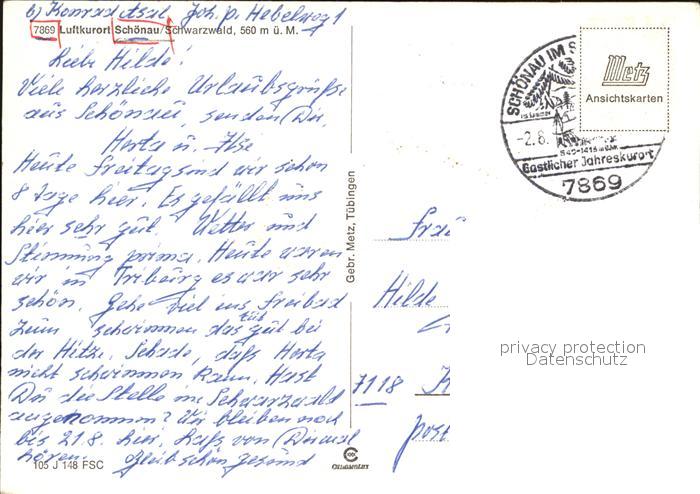 b) Konrad Asal Joh. p. Hebelweg 1
7869 Luftkurort Schönau/Schwarzwald, 560 m ü. M.
Liebe Hilde!
Viele herzliche Urlaubsgrüße
aus Schönau, senden Dir,
Herta u. Ilse
Heute Freitag sind wir schon
8 Tage hier. Es gefällt uns
hier sehr gut. Wetter und
Stimmung prima. Heute waren
wir in Triburg es war sehr
schön. Gehe viel ins Freibad
zum schwimmen das tut gut bei
der Hitze. Schade, daß Herta
nicht schwimmen kann. Hast
Du die Stelle im Schwarzwald
angenommen? Wir bleiben noch
bis 21.8. hier, laß von Dir mal
hören. Bleib schön gesund
105 J 148 FSC
Gebr. Metz, Tübingen
SCHÖNAU IM S
-2.8.
Gastlicher Jahreskurort
7869
Metz
Ansichtskarten
Frau
Hilde
7118 K
post
privacy protection
Datenschutz